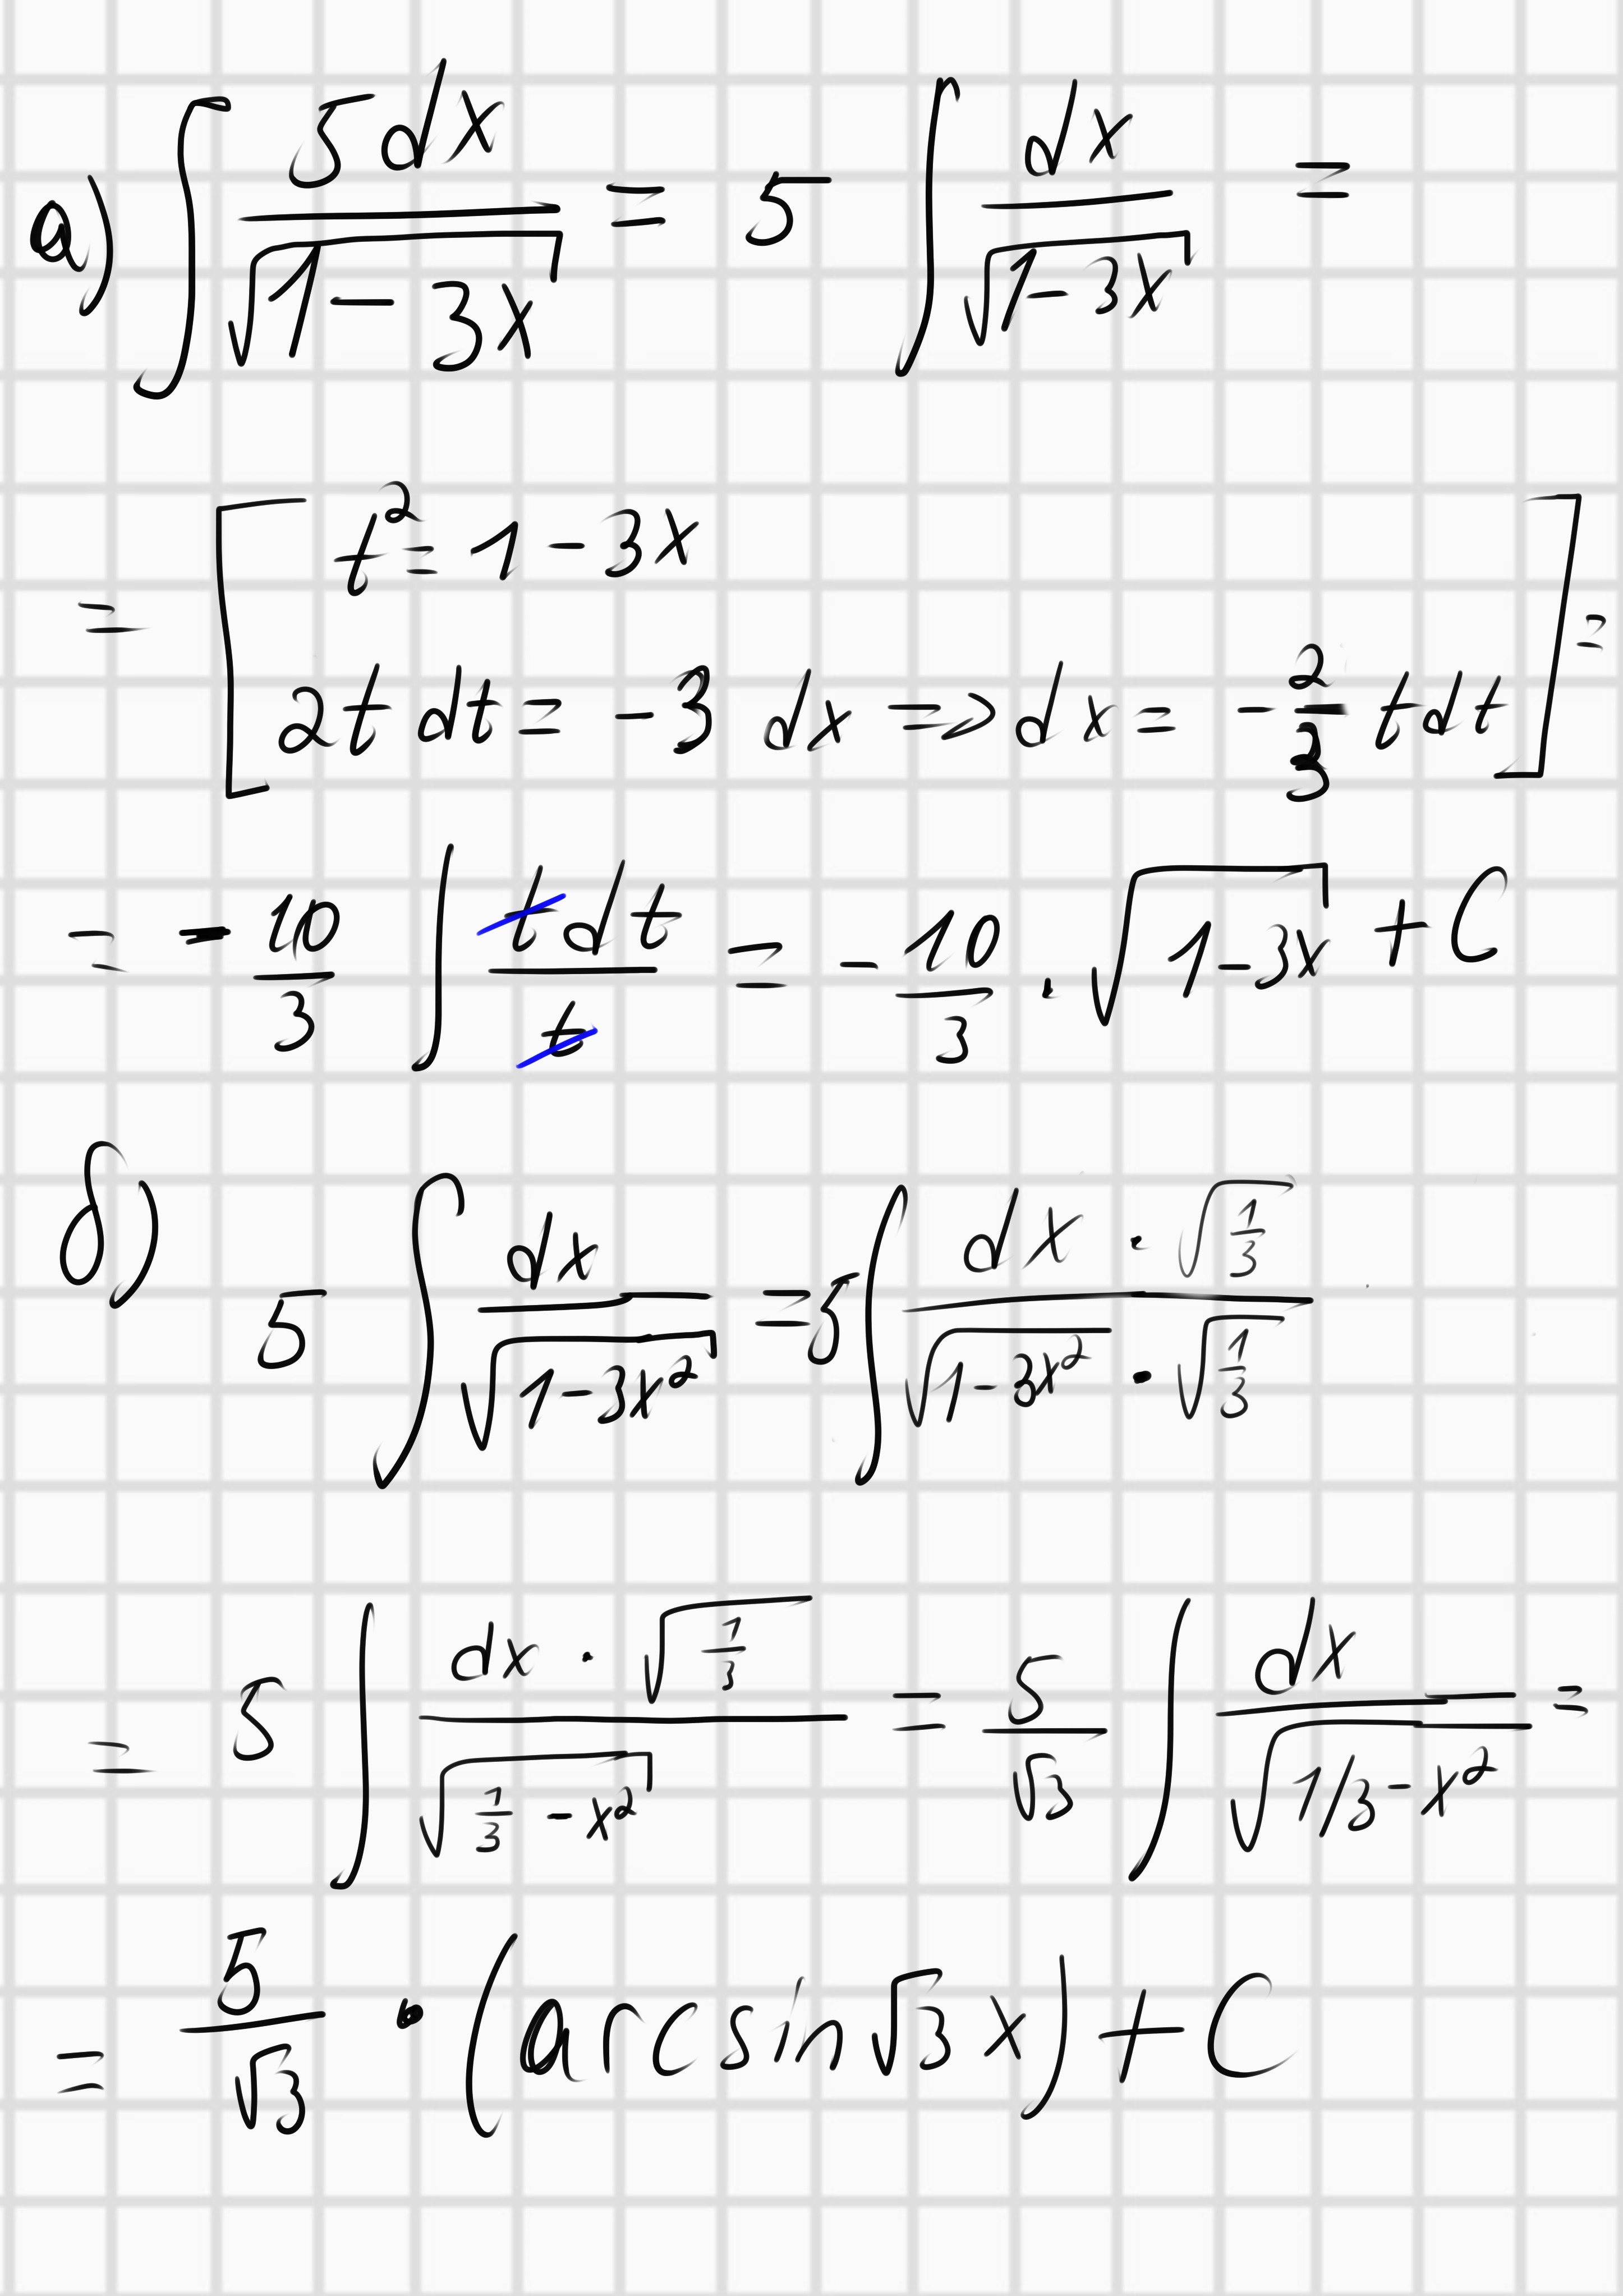 а) ∫ 5dx / √(1 - 3x) = 5 ∫ dx / √(1 - 3x) =
= [ t² = 1 - 3x
2t dt = -3 dx => dx = -2/3 t dt ] =
= -10/3 ∫ t dt / t = -10/3 · √(1 - 3x) + C
б) 5 ∫ dx / √(1 - 3x²) = 5 ∫ dx · √(1/3) / √(1 - 3x²) · √(1/3)
= 5 ∫ dx · √(1/3) / √(1/3 - x²) = 5/√3 ∫ dx / √(1/3 - x²) =
= 5/√3 · (arcsin √3 x) + C